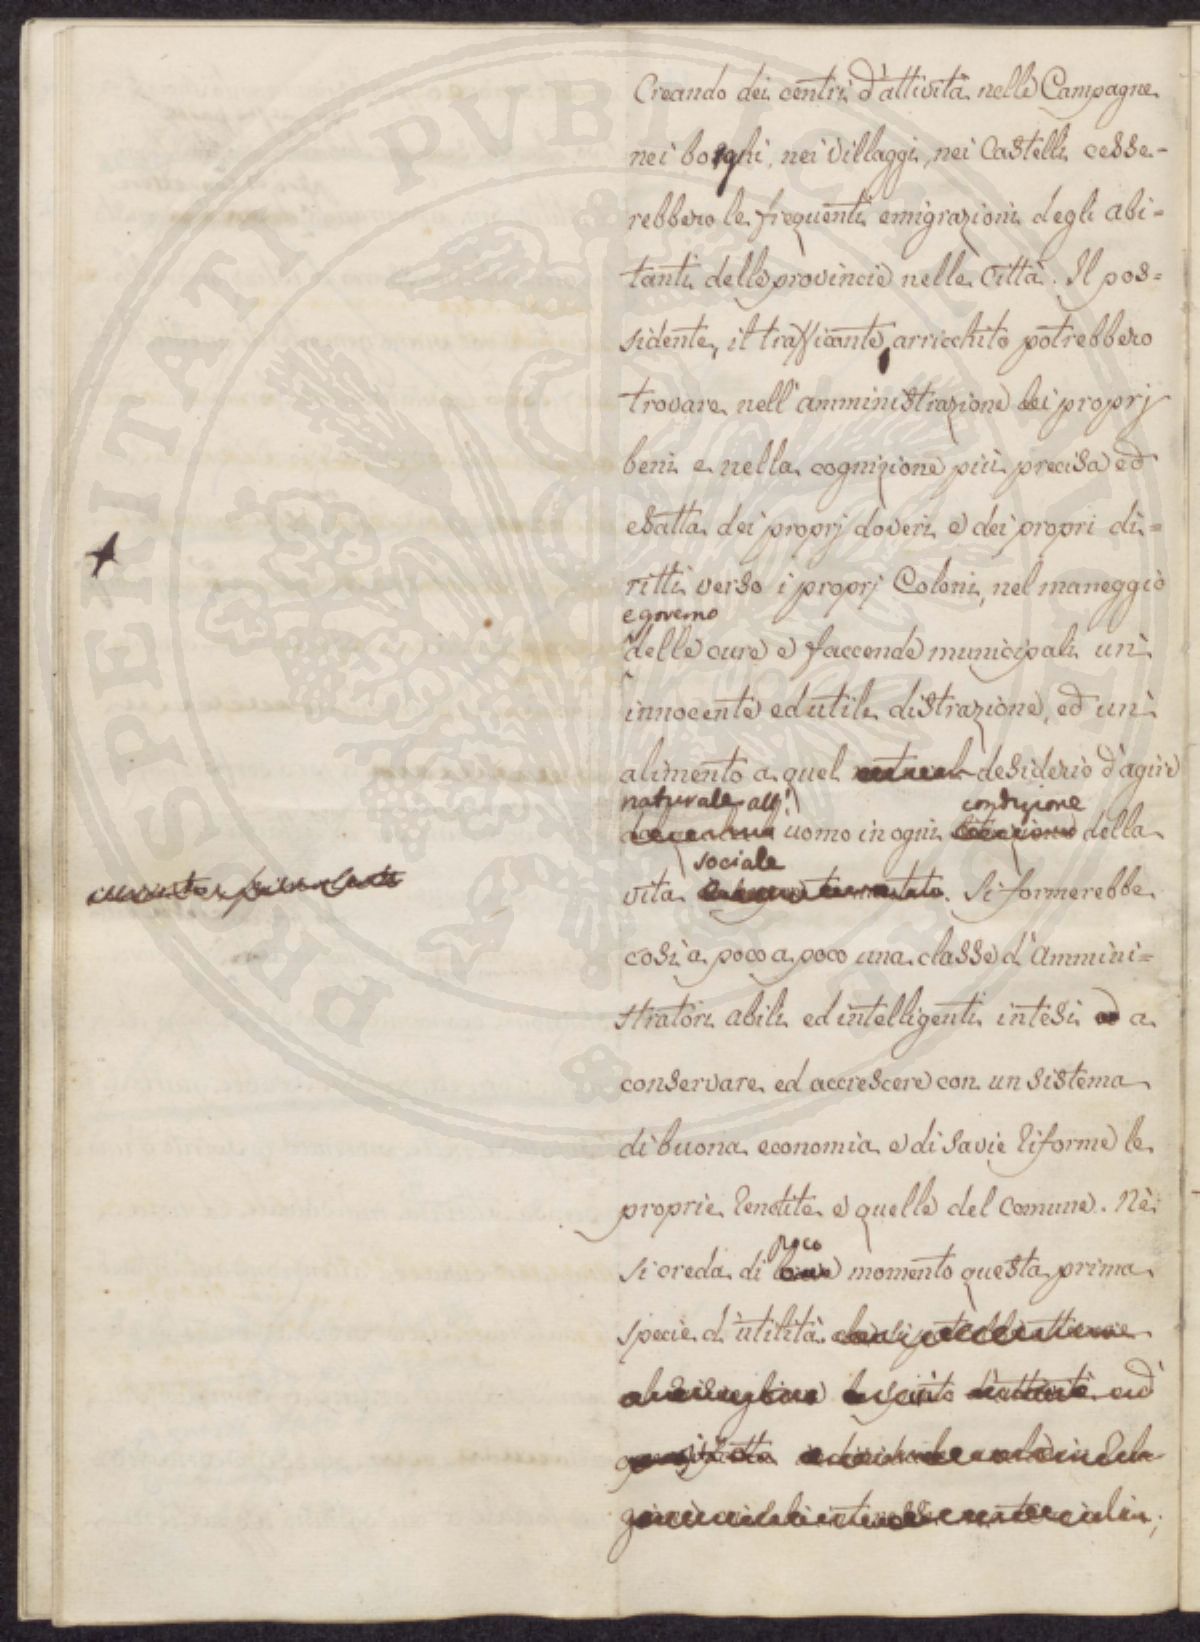 Creando dei centri d'attività nelle Campagne
nei borghi, nei villaggi, nei Castelli cesse-
rebbero le frequenti emigrazioni degli abi=
tanti delle provincie nelle Città. Il pos=
sidente, il trafficante arricchito potrebbero
trovare nell'amministrazione dei proprj
beni e nella cognizione più precisa ed
esatta dei proprj doveri e dei propri di=
ritti verso i proprj Coloni, nel maneggio
e governo
delle cure e faccende municipali un
innocente ed utile distrazione, ed un
alimento a quel desiderio d'agire
naturale all' condizione
uomo in ogni della
sociale
vita Si formerebbe
così a poco a poco una classe d'Ammini=
stratori abili ed intelligenti intesi a
conservare ed accrescere con un sistema
di buona economia e di savie riforme le
proprie rendite e quelle del Comune. Nè
poco
si creda di momento questa prima
specie d'utilità
PROSPERITATI PVBLICAE